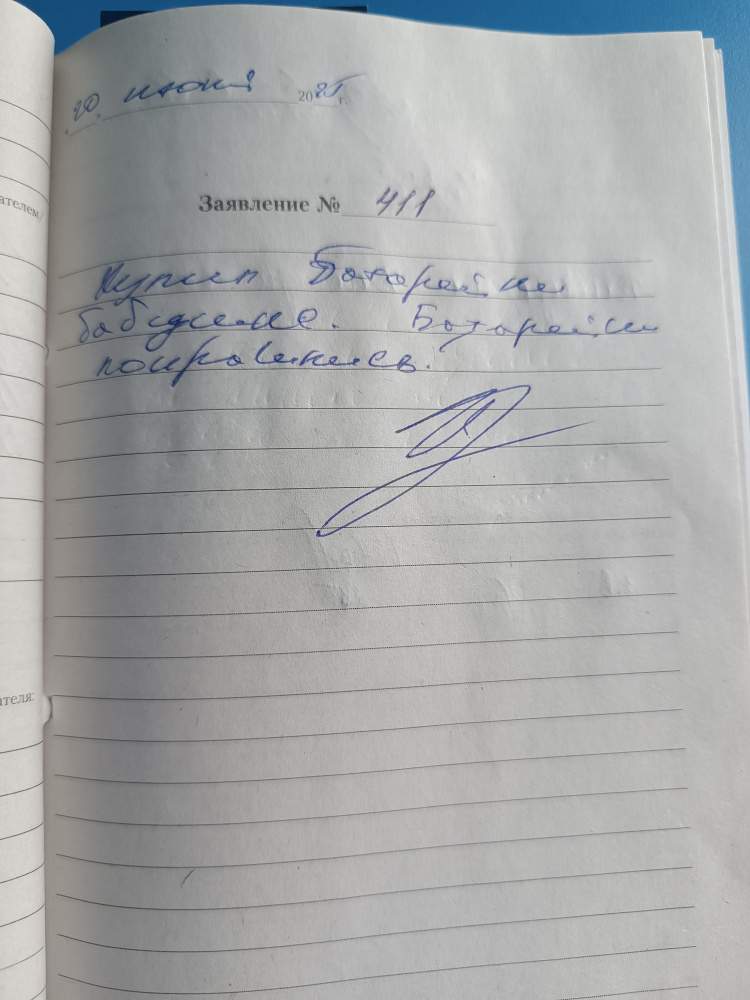 20. июня 2025 г.
Заявление № 411
Купил Батарейки
бабушке. Батарейки
понравились.
ателем/
ателя: